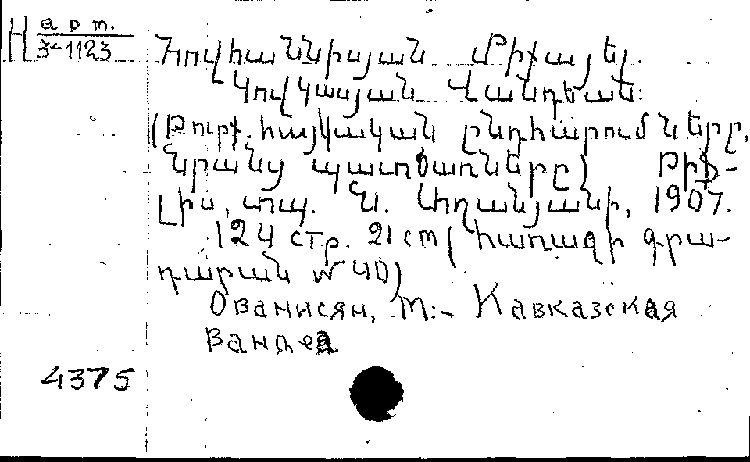 Н арт.
3-1123
Հովհաննիսյան Միքայել.
Կովկասյան Վանդեան:
(Թուրք. հայկական ընդհարումները,
նրանց պատճառները) Թիֆ-
լիս, տպ. Ն. Աղանյանի, 1907.
124 стр. 21 cm (Հառաջի գրա-
դարան № 40)
Ованисян, М:- Кавказская
Вандея
4375